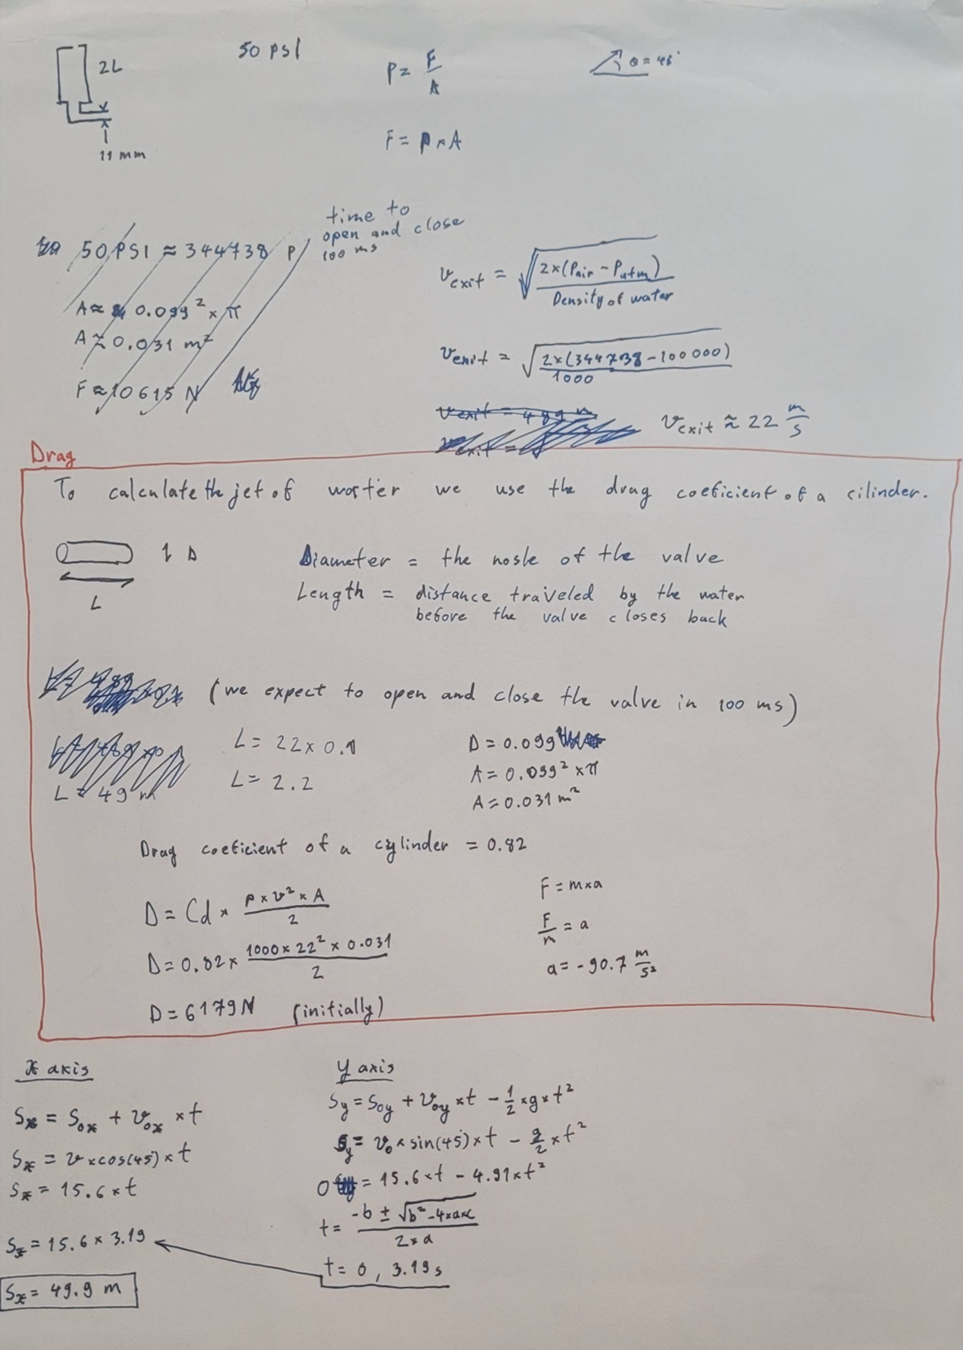 2L
50 PSI
P = F/A
θ = 45°
F = P × A
11 mm
time to
open and close
100 ms
50 PSI ≈ 344738 P
A ≈ 0.099² × π
A ≈ 0.031 m²
F ≈ 10615 N
v exit = √(2×(Pair - Patm) / Density of water)
v exit = √(2×(344738-100000) / 1000)
v exit ≈ 22 m/s
Drag
To calculate the jet of water we use the drag coeficient of a cilinder.
D
L
Diameter = the nosle of the valve
Length = distance traveled by the water
before the valve closes back
(we expect to open and close the valve in 100 ms)
L = 22 × 0.1
L = 2.2
L = 49 m
D = 0.099
A = 0.099² × π
A = 0.031 m²
Drag coeficient of a cylinder = 0.82
D = Cd × (ρ × v² × A)/2
D = 0.82 × (1000 × 22² × 0.031)/2
D = 6179 N (initially)
F = m×a
F/m = a
a = -90.7 m/s²
X axis
Sx = Sox + vox × t
Sx = v × cos(45) × t
Sx = 15.6 × t
Sx = 15.6 × 3.19
Sx = 49.9 m
y axis
Sy = Soy + voy × t - 1/2 × g × t²
Sy = vo × sin(45) × t - g/2 × t²
0 = 15.6 × t - 4.91 × t²
t = (-b ± √(b² - 4×a×c))/(2×a)
t = 0 , 3.19 s